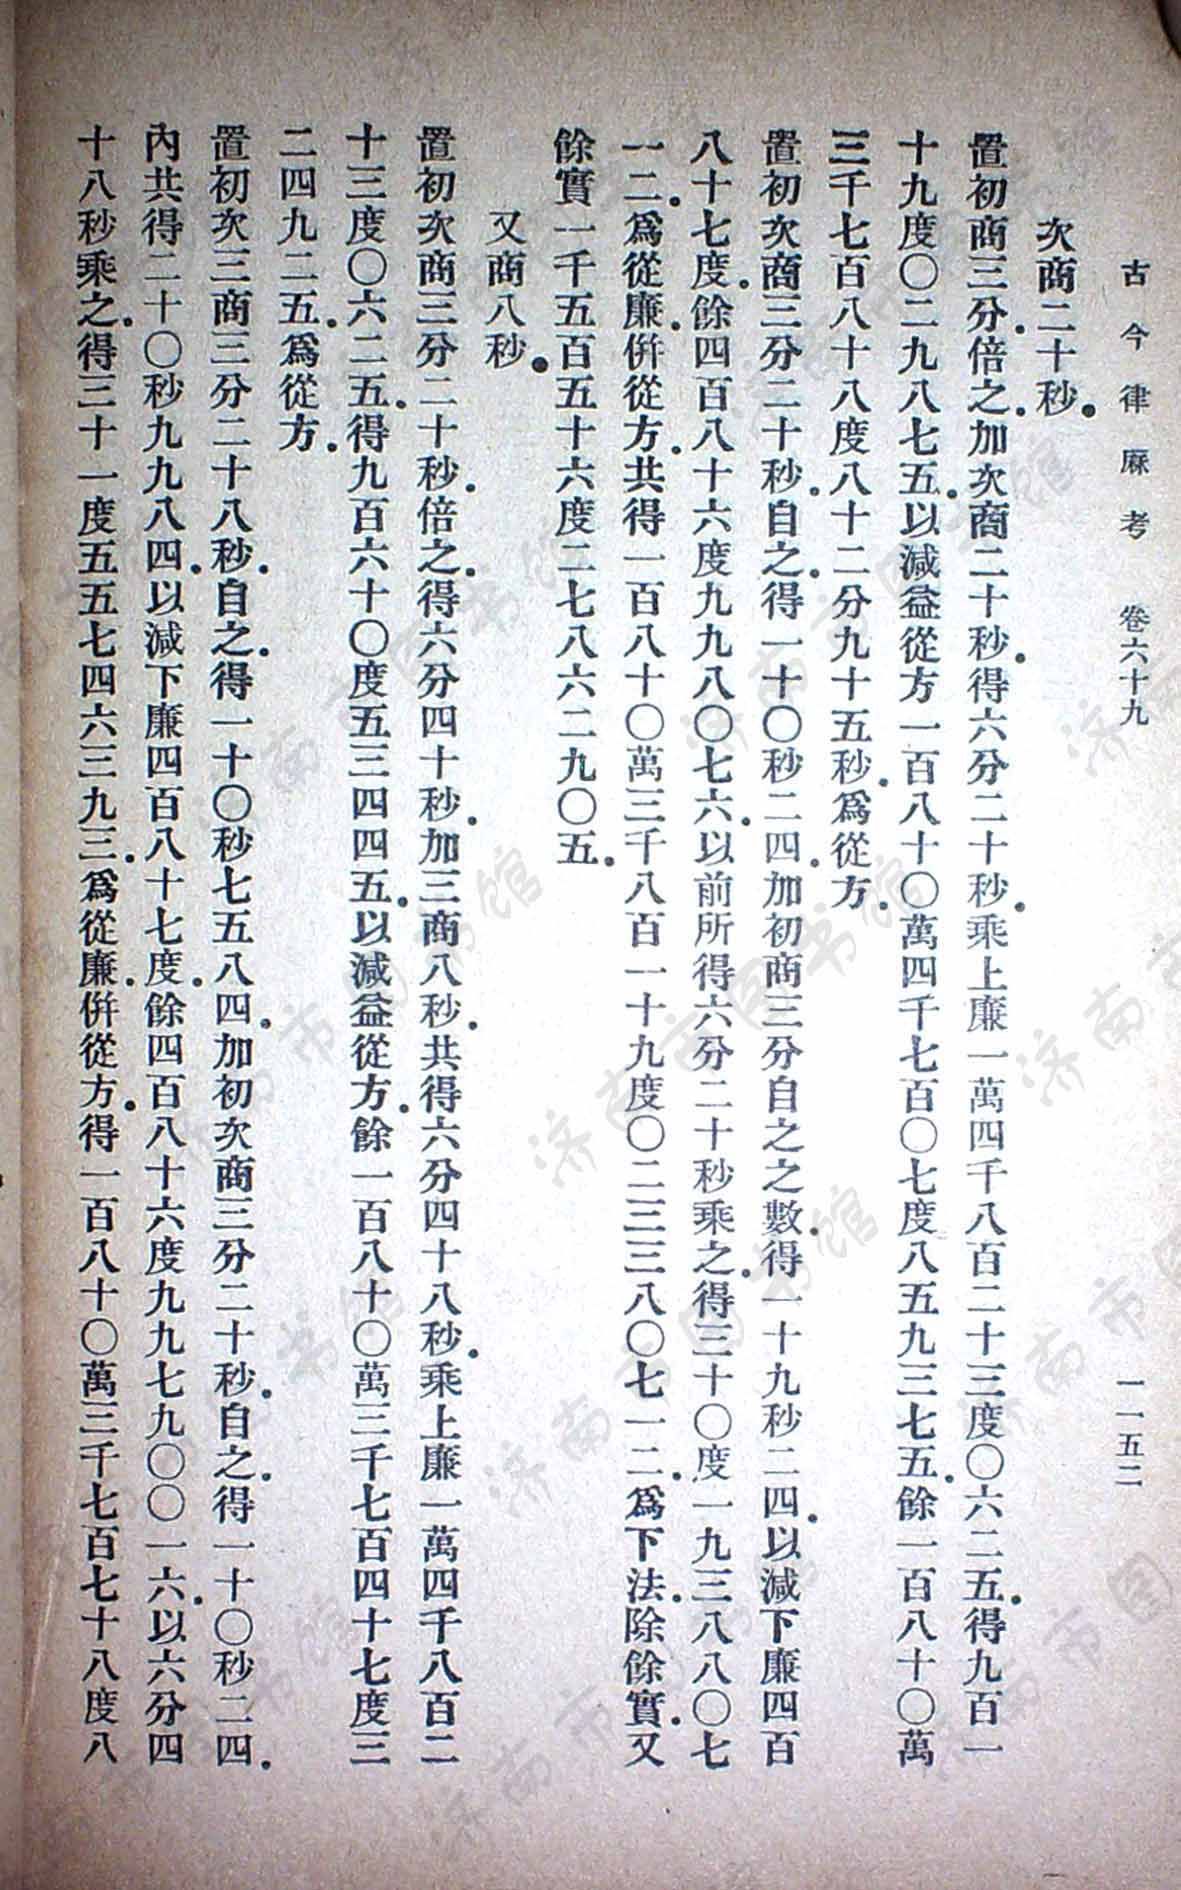 古今律厤考　卷六十九　一一五二
次商二十秒。
置初商三分。倍之。加次商二十秒。得六分二十秒。乘上廉一萬四千八百二十三度〇六二五。得九百一
十九度〇二九八七五。以減益從方一百八十〇萬四千七百〇七度八五九三七五。餘一百八十〇萬
三千七百八十八度八十二分九十五秒。爲從方。
置初次商三分二十秒。自之。得一十〇秒二四。加初商三分自之之數。得一十九秒二四。以減下廉四百
八十七度。餘四百八十六度九九八〇七六。以前所得六分二十秒乘之。得三十〇度一九三八八〇七
一二。爲從廉。併從方。共得一百八十〇萬三千八百一十九度〇二三三八〇七一二。爲下法。除餘實。又
餘實一千五百五十六度二七八六二九〇五。
又商八秒。
置初次商三分二十秒。倍之。得六分四十秒。加三商八秒。共得六分四十八秒。乘上廉一萬四千八百二
十三度〇六二五。得九百六十〇度五三四四五。以減益從方。餘一百八十〇萬三千七百四十七度三
二四九二五。爲從方。
置初次三商三分二十八秒。自之。得一十〇秒七五八四。加初次商三分二十秒。自之。得一十〇秒二四。
內共得二十〇秒九九八四。以減下廉四百八十七度。餘四百八十六度九九七九〇〇一六。以六分四
十八秒乘之。得三十一度五五七四六三九三。爲從廉。併從方。得一百八十〇萬三千七百七十八度八